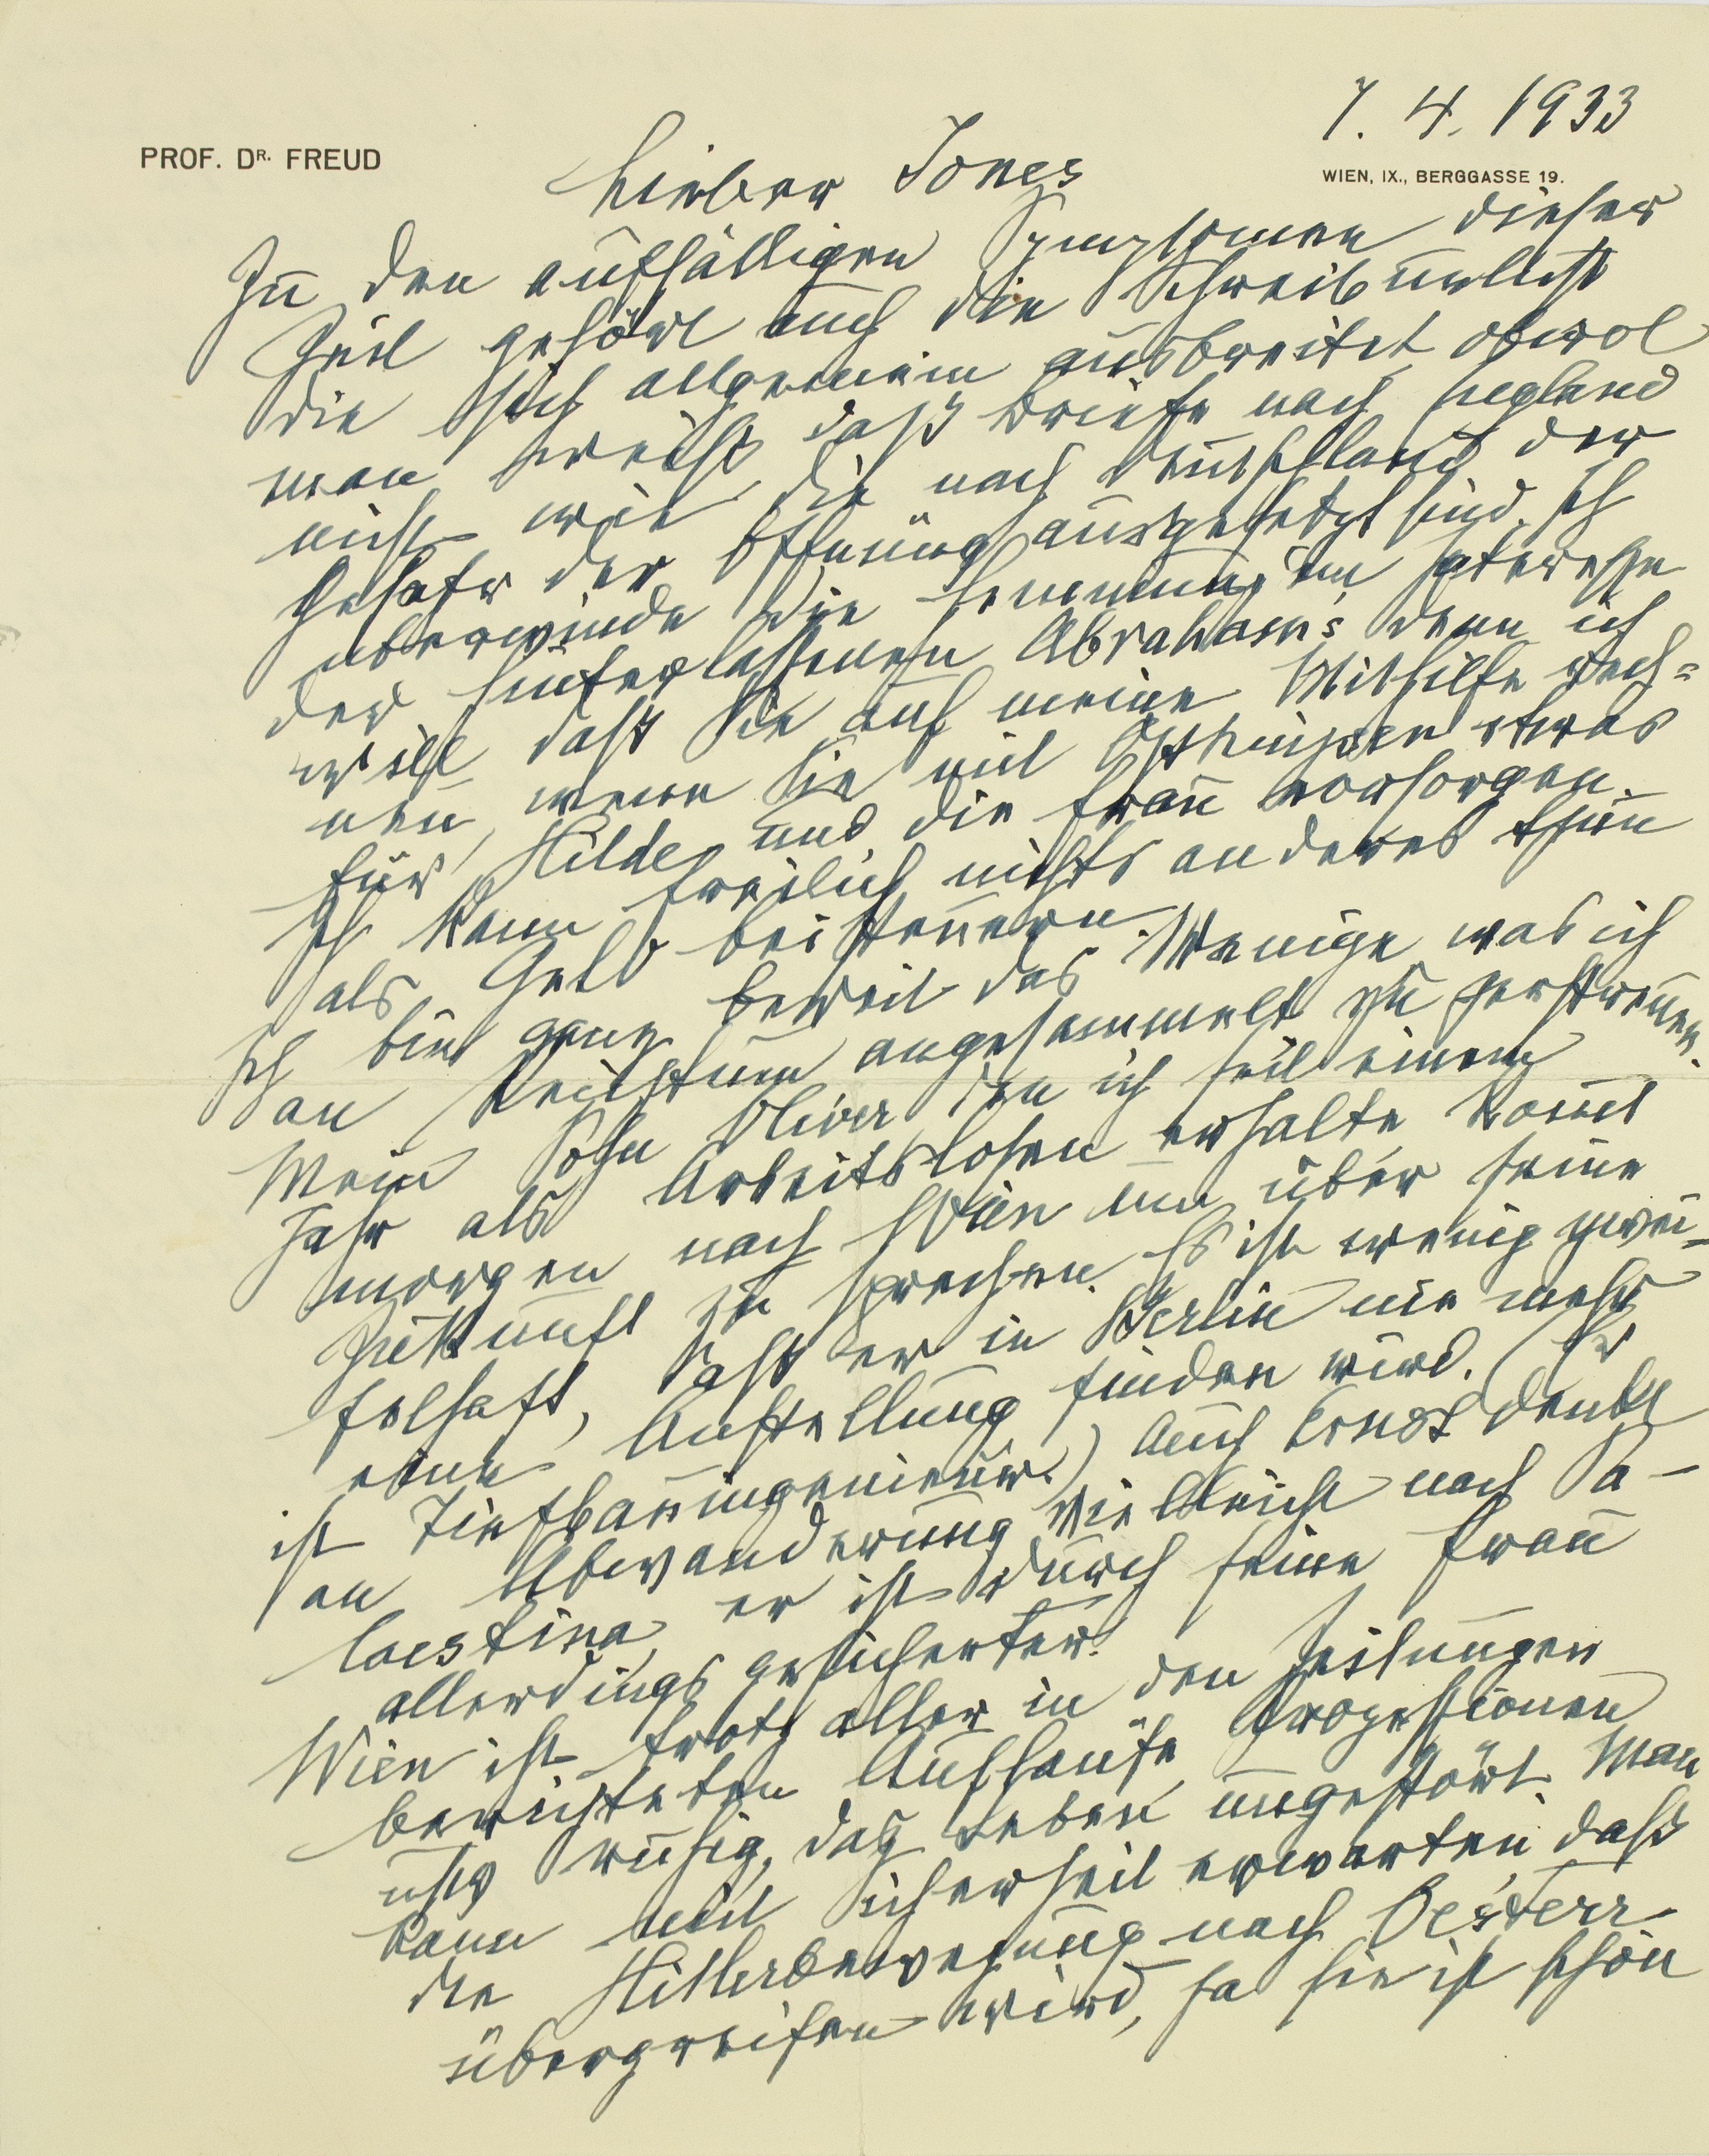 7. 4. 1933
PROF. DR. FREUD
WIEN, IX., BERGGASSE 19.
Lieber Jones
Zu den auffälligen Symptomen dieser
Zeit gehört auch die Schreibunlust
die sich allgemein ausbreitet obwol
man weiß, daß Briefe nach England
nicht wie die nach Deutschland der
Gefahr der Öffnung ausgesetzt sind. Ich
überwinde die Hemmung im Interesse
der Hinterlassenen Abraham's denn ich
will daß Sie auf meine Mithilfe rech=
nen, wenn Sie mit Eitingon etwas
für Hilde und die Frau vorsorgen.
Ich kann freilich nichts anderes thun
als Geld beisteuern.
Ich bin ganz bereit das Wenige was ich
an Reichtum angesammelt zu zerstreuen.
Mein Sohn Oliver den ich seit einem
Jahr als Arbeitslosen erhalte kommt
morgen nach Wien um über seine
Zukunft zu sprechen. Es ist wenig zwei-
felhaft, daß er in Berlin nie mehr
eine Anstellung finden wird. (Er
ist Tiefbauingenieur.) Auch Ernst denkt
an Abwanderung vielleicht nach Pa-
laestina, er ist durch seine Frau
allerdings gesicherter.
Wien ist trotz aller in den Zeitungen
berichteten Aufläufe, Prozessionen
usw ruhig, das Leben ungestört. Man
kann mit Sicherheit erwarten, daß
die Hitlerbewegung nach Oesterr
übergreifen wird, ja sie ist schon